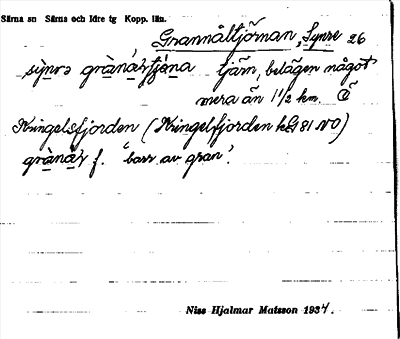 Särna sn Särna och Idre tg Kopp. län.
Grannåltjörnan, Synre 26
sỳnrə grànàlstjø̀na tjärn, belägen något
mera än 1 1/2 km. Ö
Kringelsfjorden (Kringelfjorden kbl 81 NO)
grànàl f. "barr av gran".
Niss Hjalmar Matsson 1934.